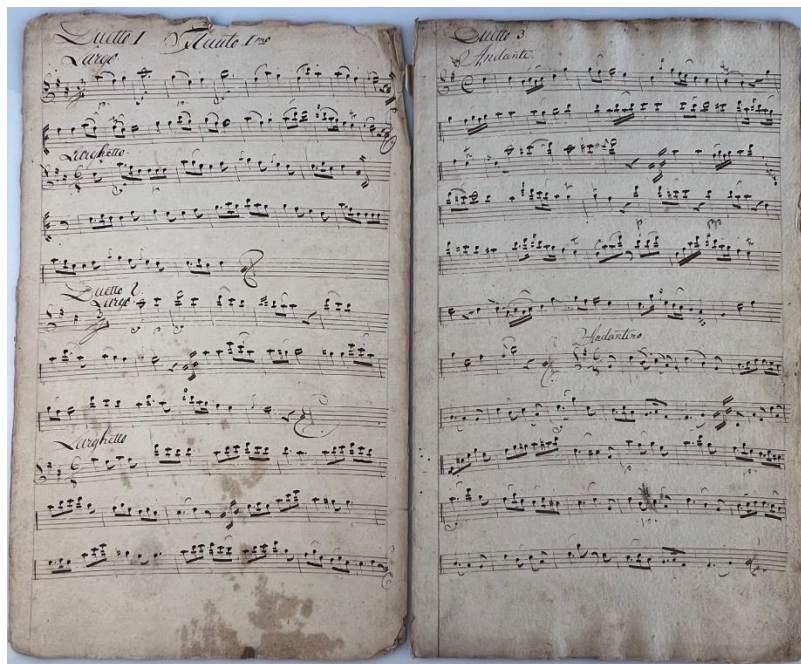 Duetto 1 Flauto 1mo
Largo
Larghetto
Duetto 2
Largo
Larghetto
Duetto 3
Andante
pp
Andantino